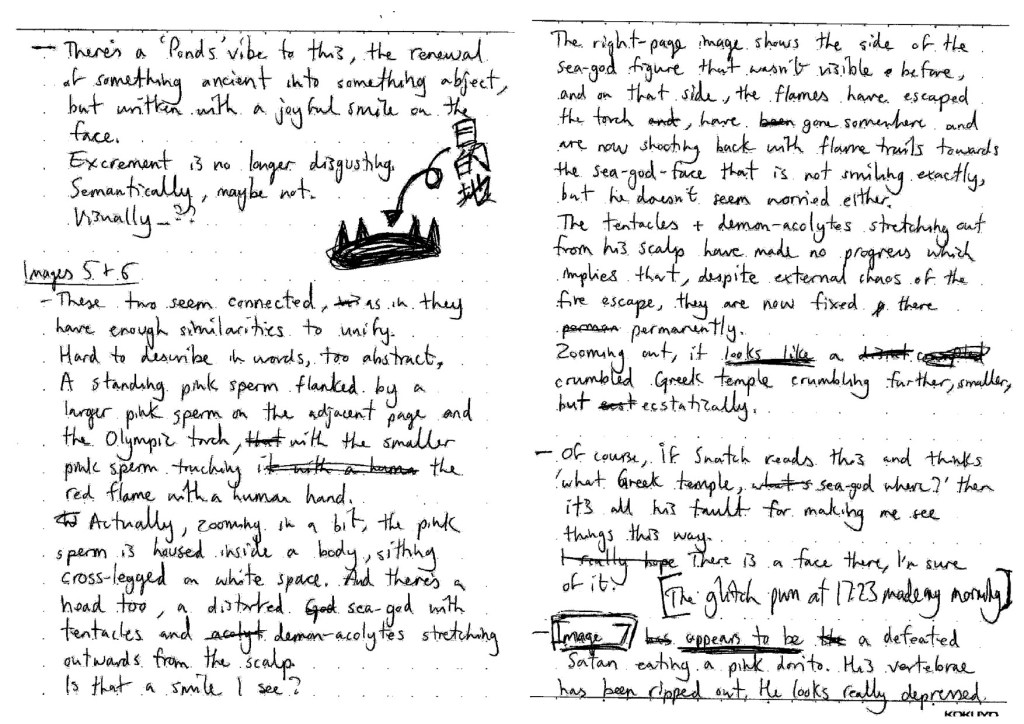 – There's a 'Ponds' vibe to this, the renewal
of something ancient into something abject,
but written with a joyful smile on the
face.
Excrement is no longer disgusting.
Semantically, maybe not.
Visually_??
目的地
Images 5 + 6
– These two seem connected, as in they
have enough similarities to unify.
Hard to describe in words, too abstract,
A standing pink sperm flanked by a
larger pink sperm on the adjacent page and
the Olympic torch, that with the smaller
pink sperm touching it with a human the
red flame with a human hand.
Actually, zooming in a bit, the pink
sperm is housed inside a body, sitting
cross-legged on white space. And there's a
head too, a distorted God sea-god with
tentacles and acolyt demon-acolytes stretching
outwards from the scalp.
Is that a smile I see?
The right-page image shows the side of the
sea-god figure that wasn't visible before,
and on that side, the flames have escaped
the torch and, have been gone somewhere and
are now shooting back with flame trails towards
the sea-god-face that is not smiling exactly,
but he doesn't seem worried either.
The tentacles + demon-acolytes stretching out
from his scalp have made no progress which
implies that, despite external chaos of the
fire escape, they are now fixed there
perman permanently.
Zooming out, it looks like a
crumbled Greek temple crumbling further, smaller,
but ecstatically.
– Of course, if Snatch reads this and thinks
'what Greek temple, what's sea-god where?' then
it's all his fault for making me see
things this way.
I really hope There is a face there, I'm sure
of it.
[The glitch pun at 17:23 made my morning]
– Image 7 has appears to be the a defeated
Satan eating a pink dorito. His vertebrae
has been ripped out. He looks really depressed.
KOKUYO